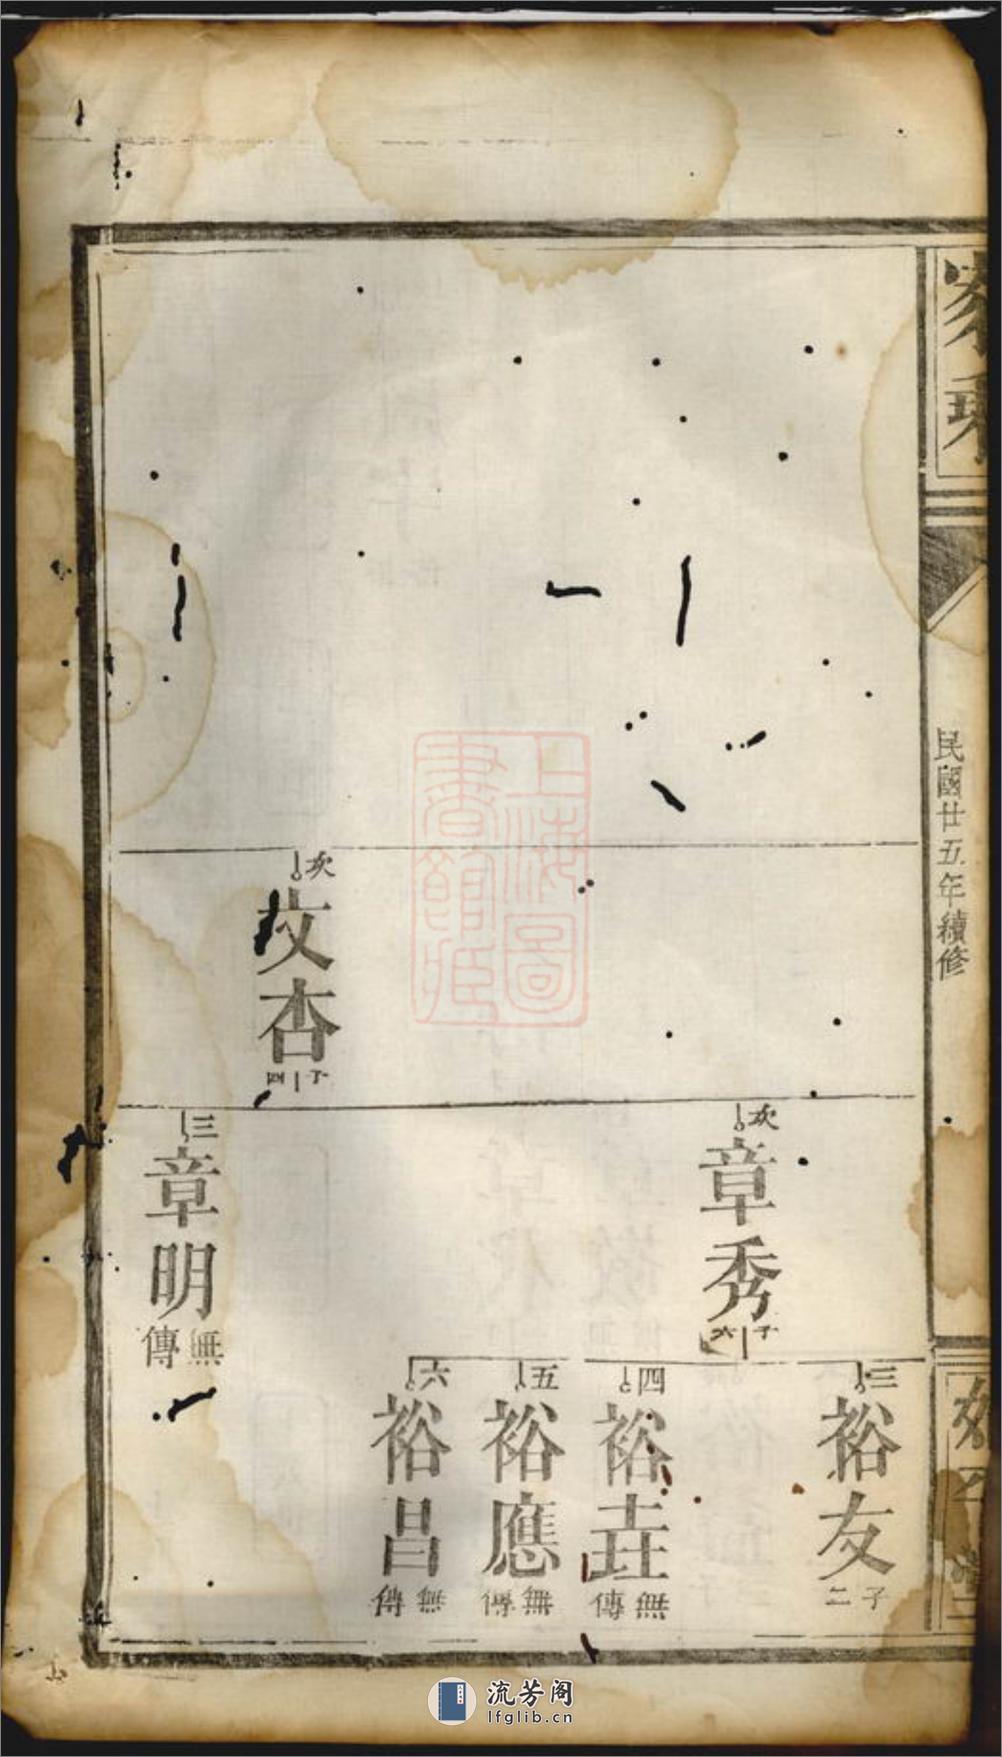 家乘
民國廿五年續修
三
裕友
子二
次
章秀
子六
四
裕垚
無傳
五
裕應
無傳
六
裕昌
無傳
次
文杏
子四
三
章明
無傳
上海圖
書館藏
流芳阁
lfglib.cn